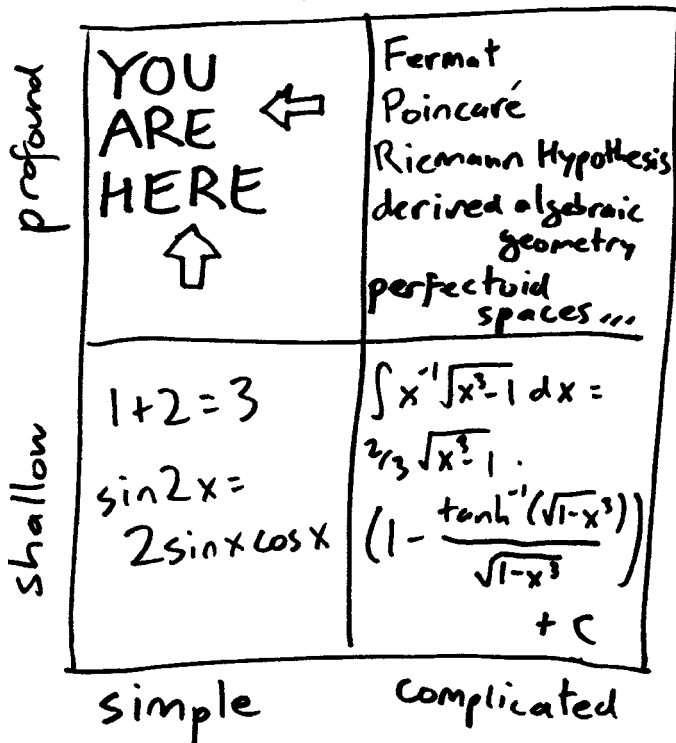 profound
YOU
ARE
HERE
Fermat
Poincaré
Riemann Hypothesis
derived algebraic
geometry
perfectoid
spaces...
shallow
1+2=3
sin2x=
2sinx cosx
∫x⁻¹√(x³-1) dx =
2/3 √(x³-1) ·
(1 - tanh⁻¹(√(1-x³))/√(1-x³))
+ C
simple
complicated